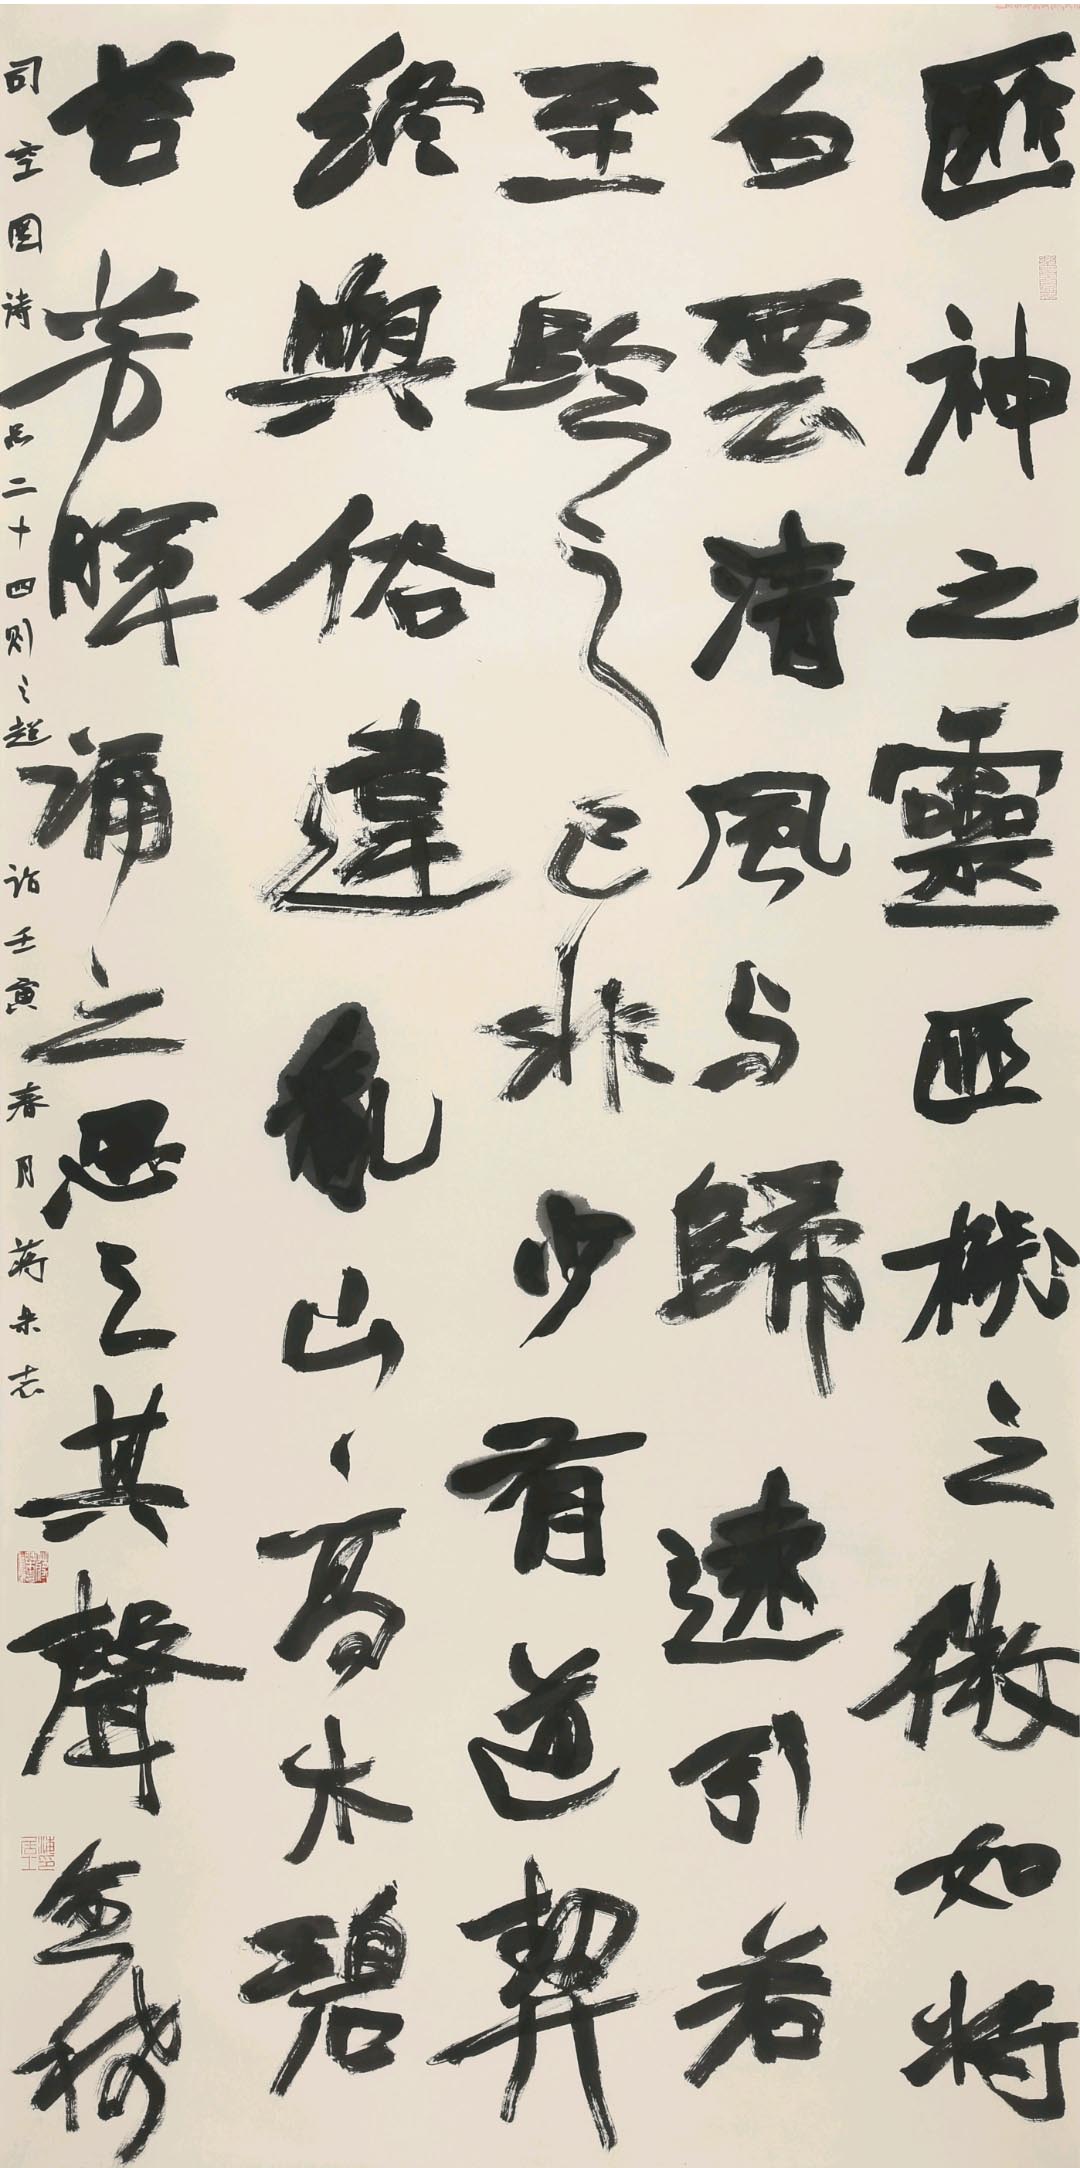 匪神之靈匪機之微如将
白雲清風与歸遠引若
至臨之已非少有道契
終與俗違亂山高木碧
苔芳暉誦之思之其聲愈稀
司空図詩品二十四则之超詣壬寅春月蒋志